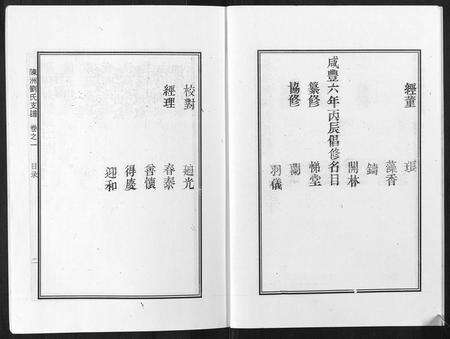 經董 璜
藻香
鑄
開林
咸豐六年丙辰倡修名目
纂修 悌堂
協修 蘭
羽儀
校對 廸光
經理 春泰
善儐
得慶
迎和
陳洲劉氏支譜 卷之一 目录 二